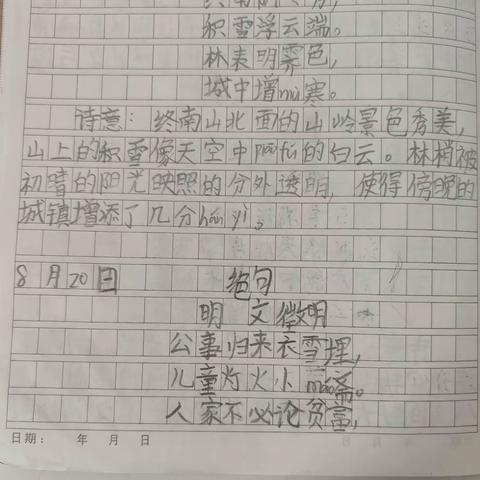 积雪浮云端。
林表明霁色,
城中增mù寒。
诗意:终南山北面的山岭景色秀美,
山上的积雪像天空中piāo fú的白云。林梢被
初晴的阳光映照的分外透明,使得傍晚的
城镇增添了几分hán yì。
8月20日 绝句
明 文徵明
公事归来衣雪埋,
儿童灯火小máo斋。
人家不必论贫富,
日期: 年 月 日